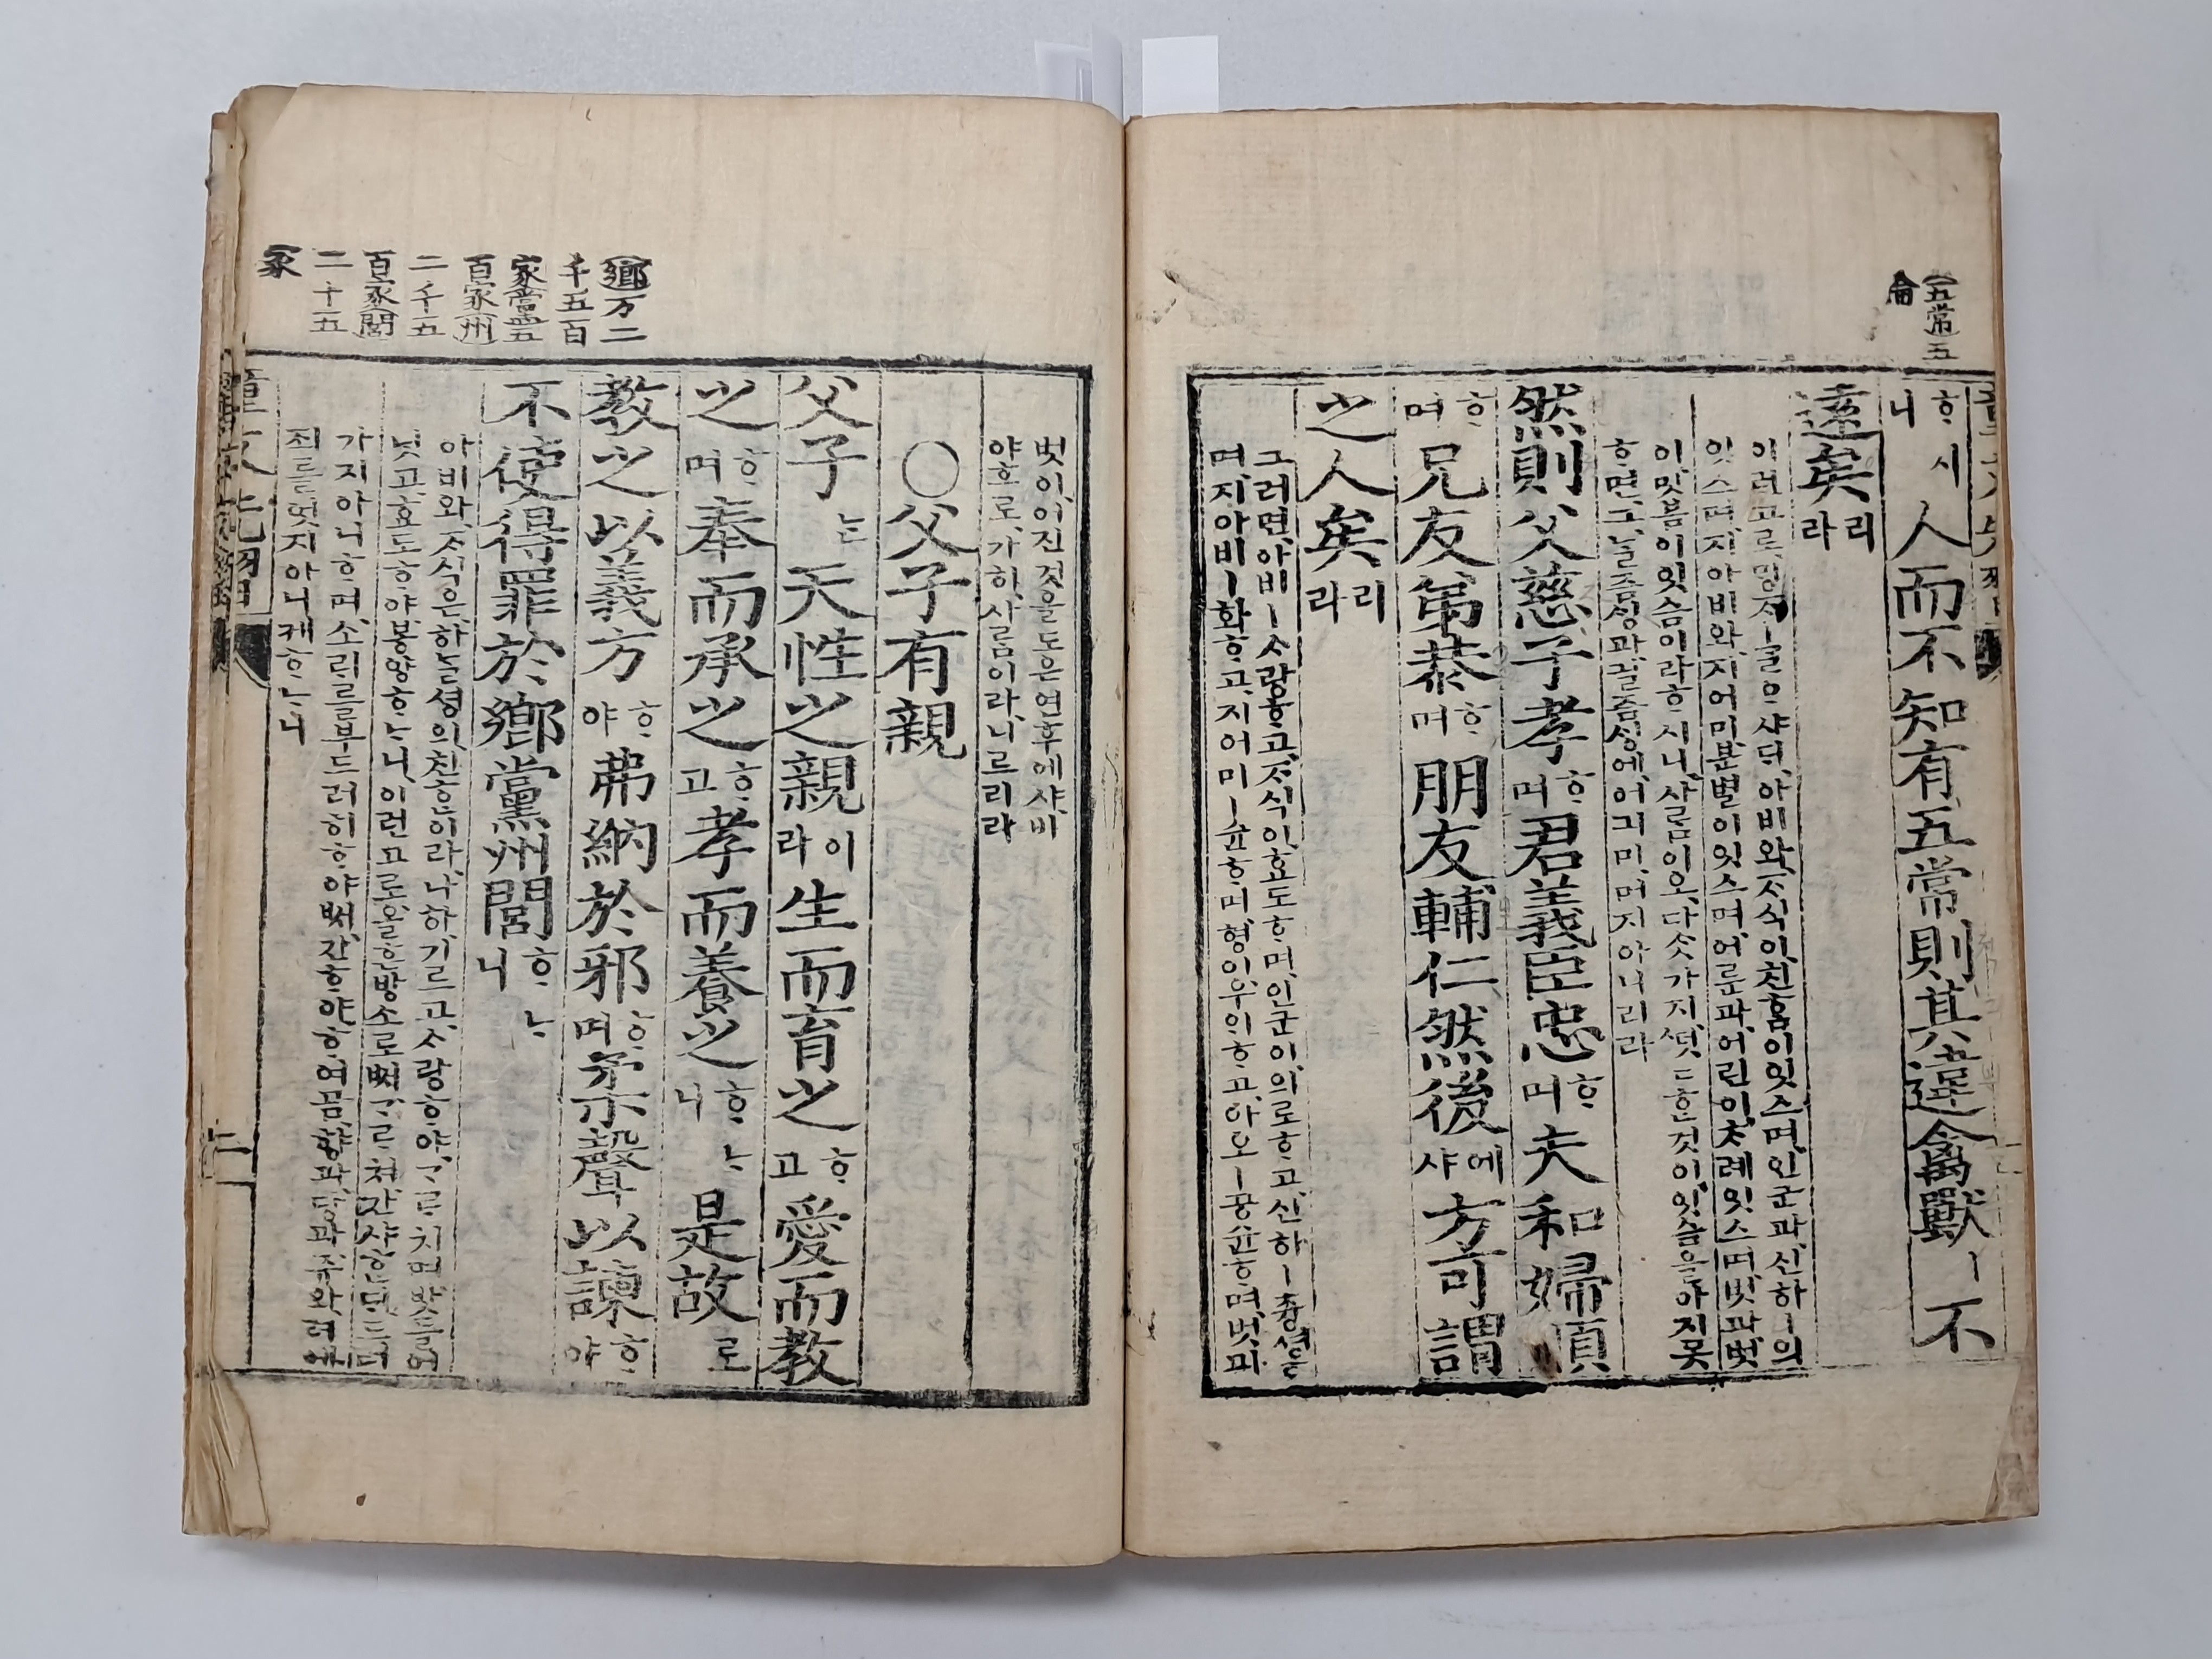 五常五
倫
ᄒᆞ시니人而不知有五常則其違禽獸ㅣ不
遠矣리라
이러고로,ᄆᆡᆼᄌᆞㅣᄀᆞᆯᄋᆞ샤ᄃᆡ,아비와,ᄌᆞ식이,친홈이잇스며,인군과,신하ㅣ의
잇스며,지아비와,지어미,분별이잇스며,어룬과,어린이,ᄎᆞ례잇스며,벗과,벗
이,밋븜이잇슴이라ᄒᆞ시니,사ᄅᆞᆷ이오,다ᄉᆞᆺ가지,ᄯᅥᆺᄯᅥᆺᄒᆞᆫ것이,잇슴을,아지못
ᄒᆞ면,그,ᄂᆞᆯ즘ᄉᆡᆼ과,긜즘ᄉᆡᆼ에,어긔미,머지아니리라
然則父慈子孝ᄒᆞ며君義臣忠ᄒᆞ며夫和婦順
ᄒᆞ며兄友弟恭ᄒᆞ며朋友輔仁然後에샤方可謂
之人矣리라
그러면,아비ㅣᄉᆞ랑ᄒᆞ고,ᄌᆞ식이,효도ᄒᆞ며,인군이,의로ᄒᆞ고,신하ㅣ츙셩ᄒᆞ
며,지아비ㅣ화ᄒᆞ고,지어미ㅣ슌ᄒᆞ며,형이,우ᄋᆡᄒᆞ고,아오ㅣ공슌ᄒᆞ며,벗과
鄉万二
千五百
家黨五
百家州
二千五
百家閭
二十五
家
벗이,어진것을도은연후에샤,비
야흐로,가히,사ᄅᆞᆷ이라,니르리라
○父子有親
父子ᄂᆞᆫ天性之親이라生而育之ᄒᆞ고愛而教
之ᄒᆞ며奉而承之ᄒᆞ고孝而養之ᄒᆞᄂᆞ니是故로
教之以義方ᄒᆞ야弗納於邪ᄒᆞ며柔聲以諫ᄒᆞ야
不使得罪於鄉黨州閭ᄒᆞᄂᆞ니
아비와,ᄌᆞ식은,하ᄂᆞᆯ셩의,친ᄒᆞᆫ이라,나하,기르고,ᄉᆞ랑ᄒᆞ야,ᄀᆞᄅᆞ치며,밧들어
닛고,효도ᄒᆞ야,봉양ᄒᆞᄂᆞ니,이런고로,올흔방소로ᄡᅥ,ᄀᆞᄅᆞ쳐,간샤ᄒᆞᆫᄃᆡ,드려
가지아니ᄒᆞ며,소ᄅᆡ를부드러히ᄒᆞ야ᄡᅥ,간ᄒᆞ야,ᄒᆞ여곰,향과,당과,쥬와,려에
죄를,엇지아니케ᄒᆞᄂᆞ니